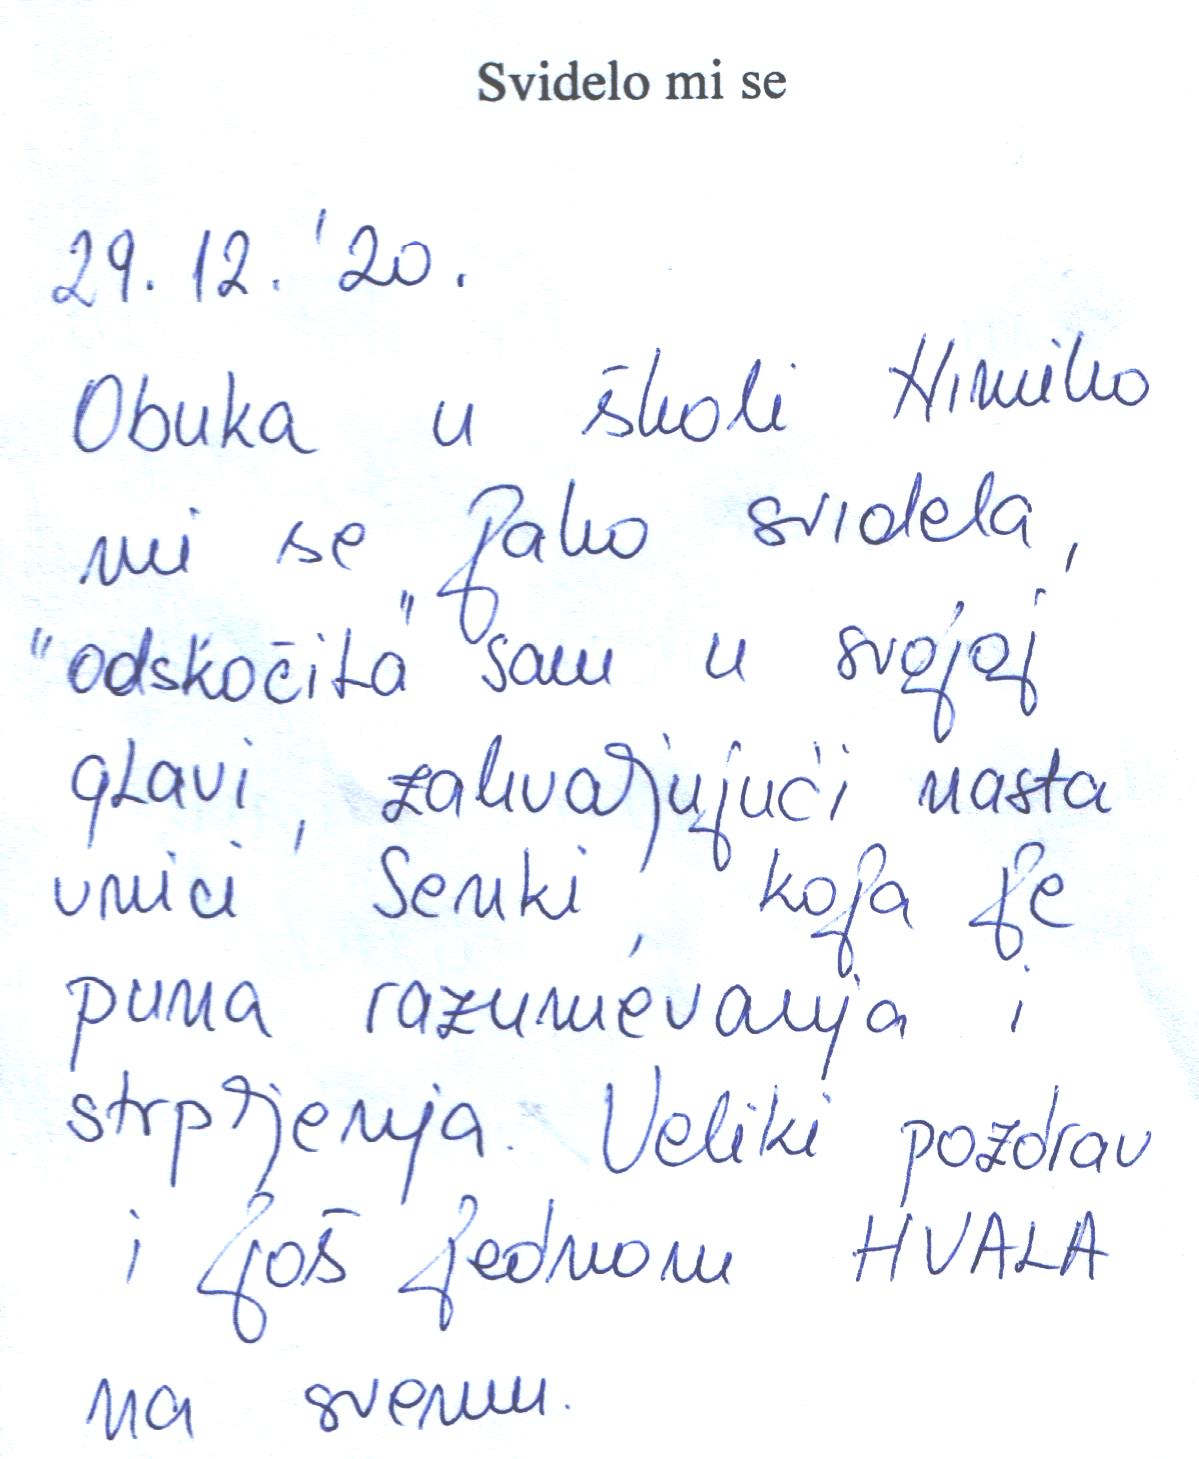 Svidelo mi se
29. 12. '20.
Obuka u školi Himiko
mi se jako svidela,
"odskočila" sam u svojoj
glavi, zahvaljujući nasta
vnici Senki, koja je
puna razumevanja i
strpljenja. Veliki pozdrav
i još jednom HVALA
na svemu.